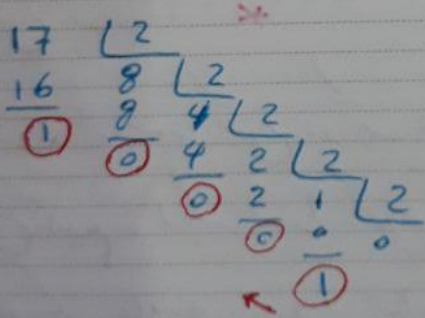 17 2
16 8 2
1 8 4 2
0 4 2 2
0 2 1 2
0 0 0
1